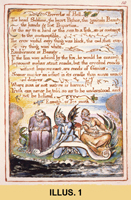 Proverbs of Hell
The head Sublime, the heart Pathos, the genitals Beauty
the hands & feet Proportion.
As the air to a bird or the sea to a fish, so is contempt
to the contemptible.
The crow wish'd every thing was black, the owl, that eve-
-ry thing was white.
Exuberance is Beauty.
If the lion was advised by the fox, he would be cunning.
Improvement makes strait roads, but the crooked roads
without Improvement, are roads of Genius.
Sooner murder an infant in its cradle than nurse
Where man is not nature is barren.
can never be told so as to be understood, and
not be believ'd.
ILLUS. 1